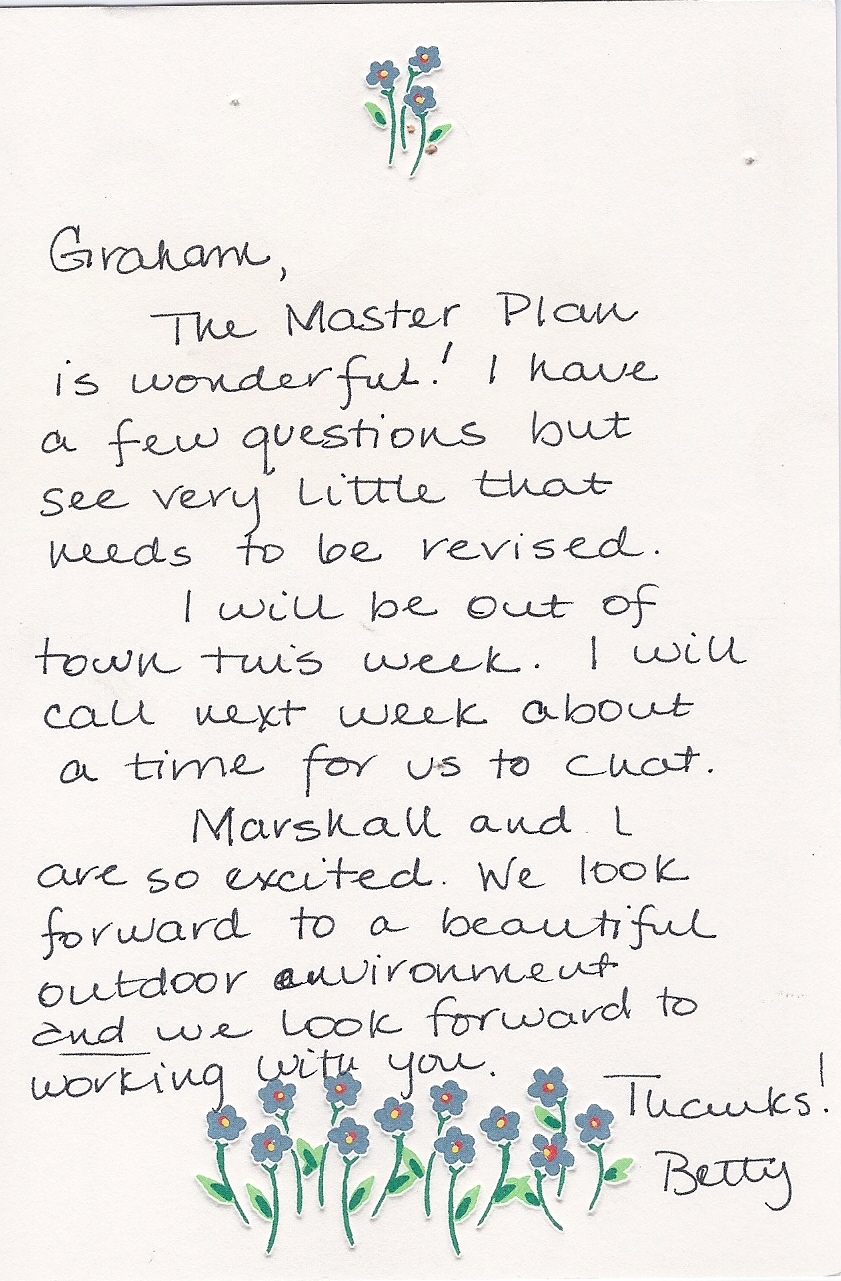 Graham,
The Master Plan
is wonderful! I have
a few questions but
see very little that
needs to be revised.
I will be out of
town this week. I will
call next week about
a time for us to chat.
Marshall and I
are so excited. We look
forward to a beautiful
outdoor environment
and we look forward to
working with you.
Thanks!
Betty